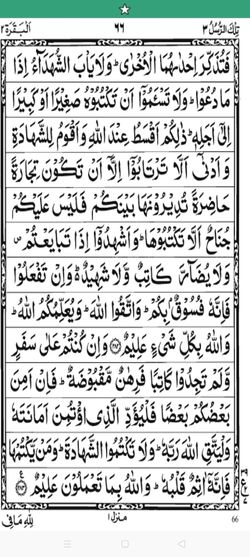 تِلْكَ الرُّسُلُ ٣ ٦٦ اَلْبَقَرَة ٢
فَتُذَكِّرَ اِحْدٰىهُمَا الْاُخْرٰى ؕ وَلَا یَاْبَ الشُّهَدَآءُ اِذَا
مَا دُعُوْا ؕ وَلَا تَسْـَٔمُوْۤا اَنْ تَكْتُبُوْهُ صَغِیْرًا اَوْ كَبِیْرًا
اِلٰۤى اَجَلِهٖ ؕ ذٰلِكُمْ اَقْسَطُ عِنْدَ اللّٰهِ وَاَقْوَمُ لِلشَّهَادَةِ
وَاَدْنٰۤى اَلَّا تَرْتَابُوْۤا اِلَّاۤ اَنْ تَكُوْنَ تِجَارَةً
حَاضِرَةً تُدِیْرُوْنَهَا بَیْنَكُمْ فَلَیْسَ عَلَیْكُمْ
جُنَاحٌ اَلَّا تَكْتُبُوْهَا ؕ وَاَشْهِدُوْۤا اِذَا تَبَایَعْتُمْ ۪
وَلَا یُضَآرَّ كَاتِبٌ وَّلَا شَهِیْدٌ ؕ۬ وَاِنْ تَفْعَلُوْا
فَاِنَّهٗ فُسُوْقٌۢ بِكُمْ ؕ وَاتَّقُوا اللّٰهَ ؕ وَیُعَلِّمُكُمُ اللّٰهُ ؕ
وَاللّٰهُ بِكُلِّ شَیْءٍ عَلِیْمٌ ﴿۲۸۲﴾ وَاِنْ كُنْتُمْ عَلٰى سَفَرٍ
وَّلَمْ تَجِدُوْا كَاتِبًا فَرِهٰنٌ مَّقْبُوْضَةٌ ؕ فَاِنْ اَمِنَ
بَعْضُكُمْ بَعْضًا فَلْیُؤَدِّ الَّذِی اؤْتُمِنَ اَمَانَتَهٗ
وَلْیَتَّقِ اللّٰهَ رَبَّهٗ ؕ وَلَا تَكْتُمُوا الشَّهَادَةَ ؕ وَمَنْ یَّكْتُمْهَا
فَاِنَّهٗۤ اٰثِمٌ قَلْبُهٗ ؕ وَاللّٰهُ بِمَا تَعْمَلُوْنَ عَلِیْمٌ ﴿۲۸۳﴾
لِلّٰهِ مَا فِی منزل ١ 66